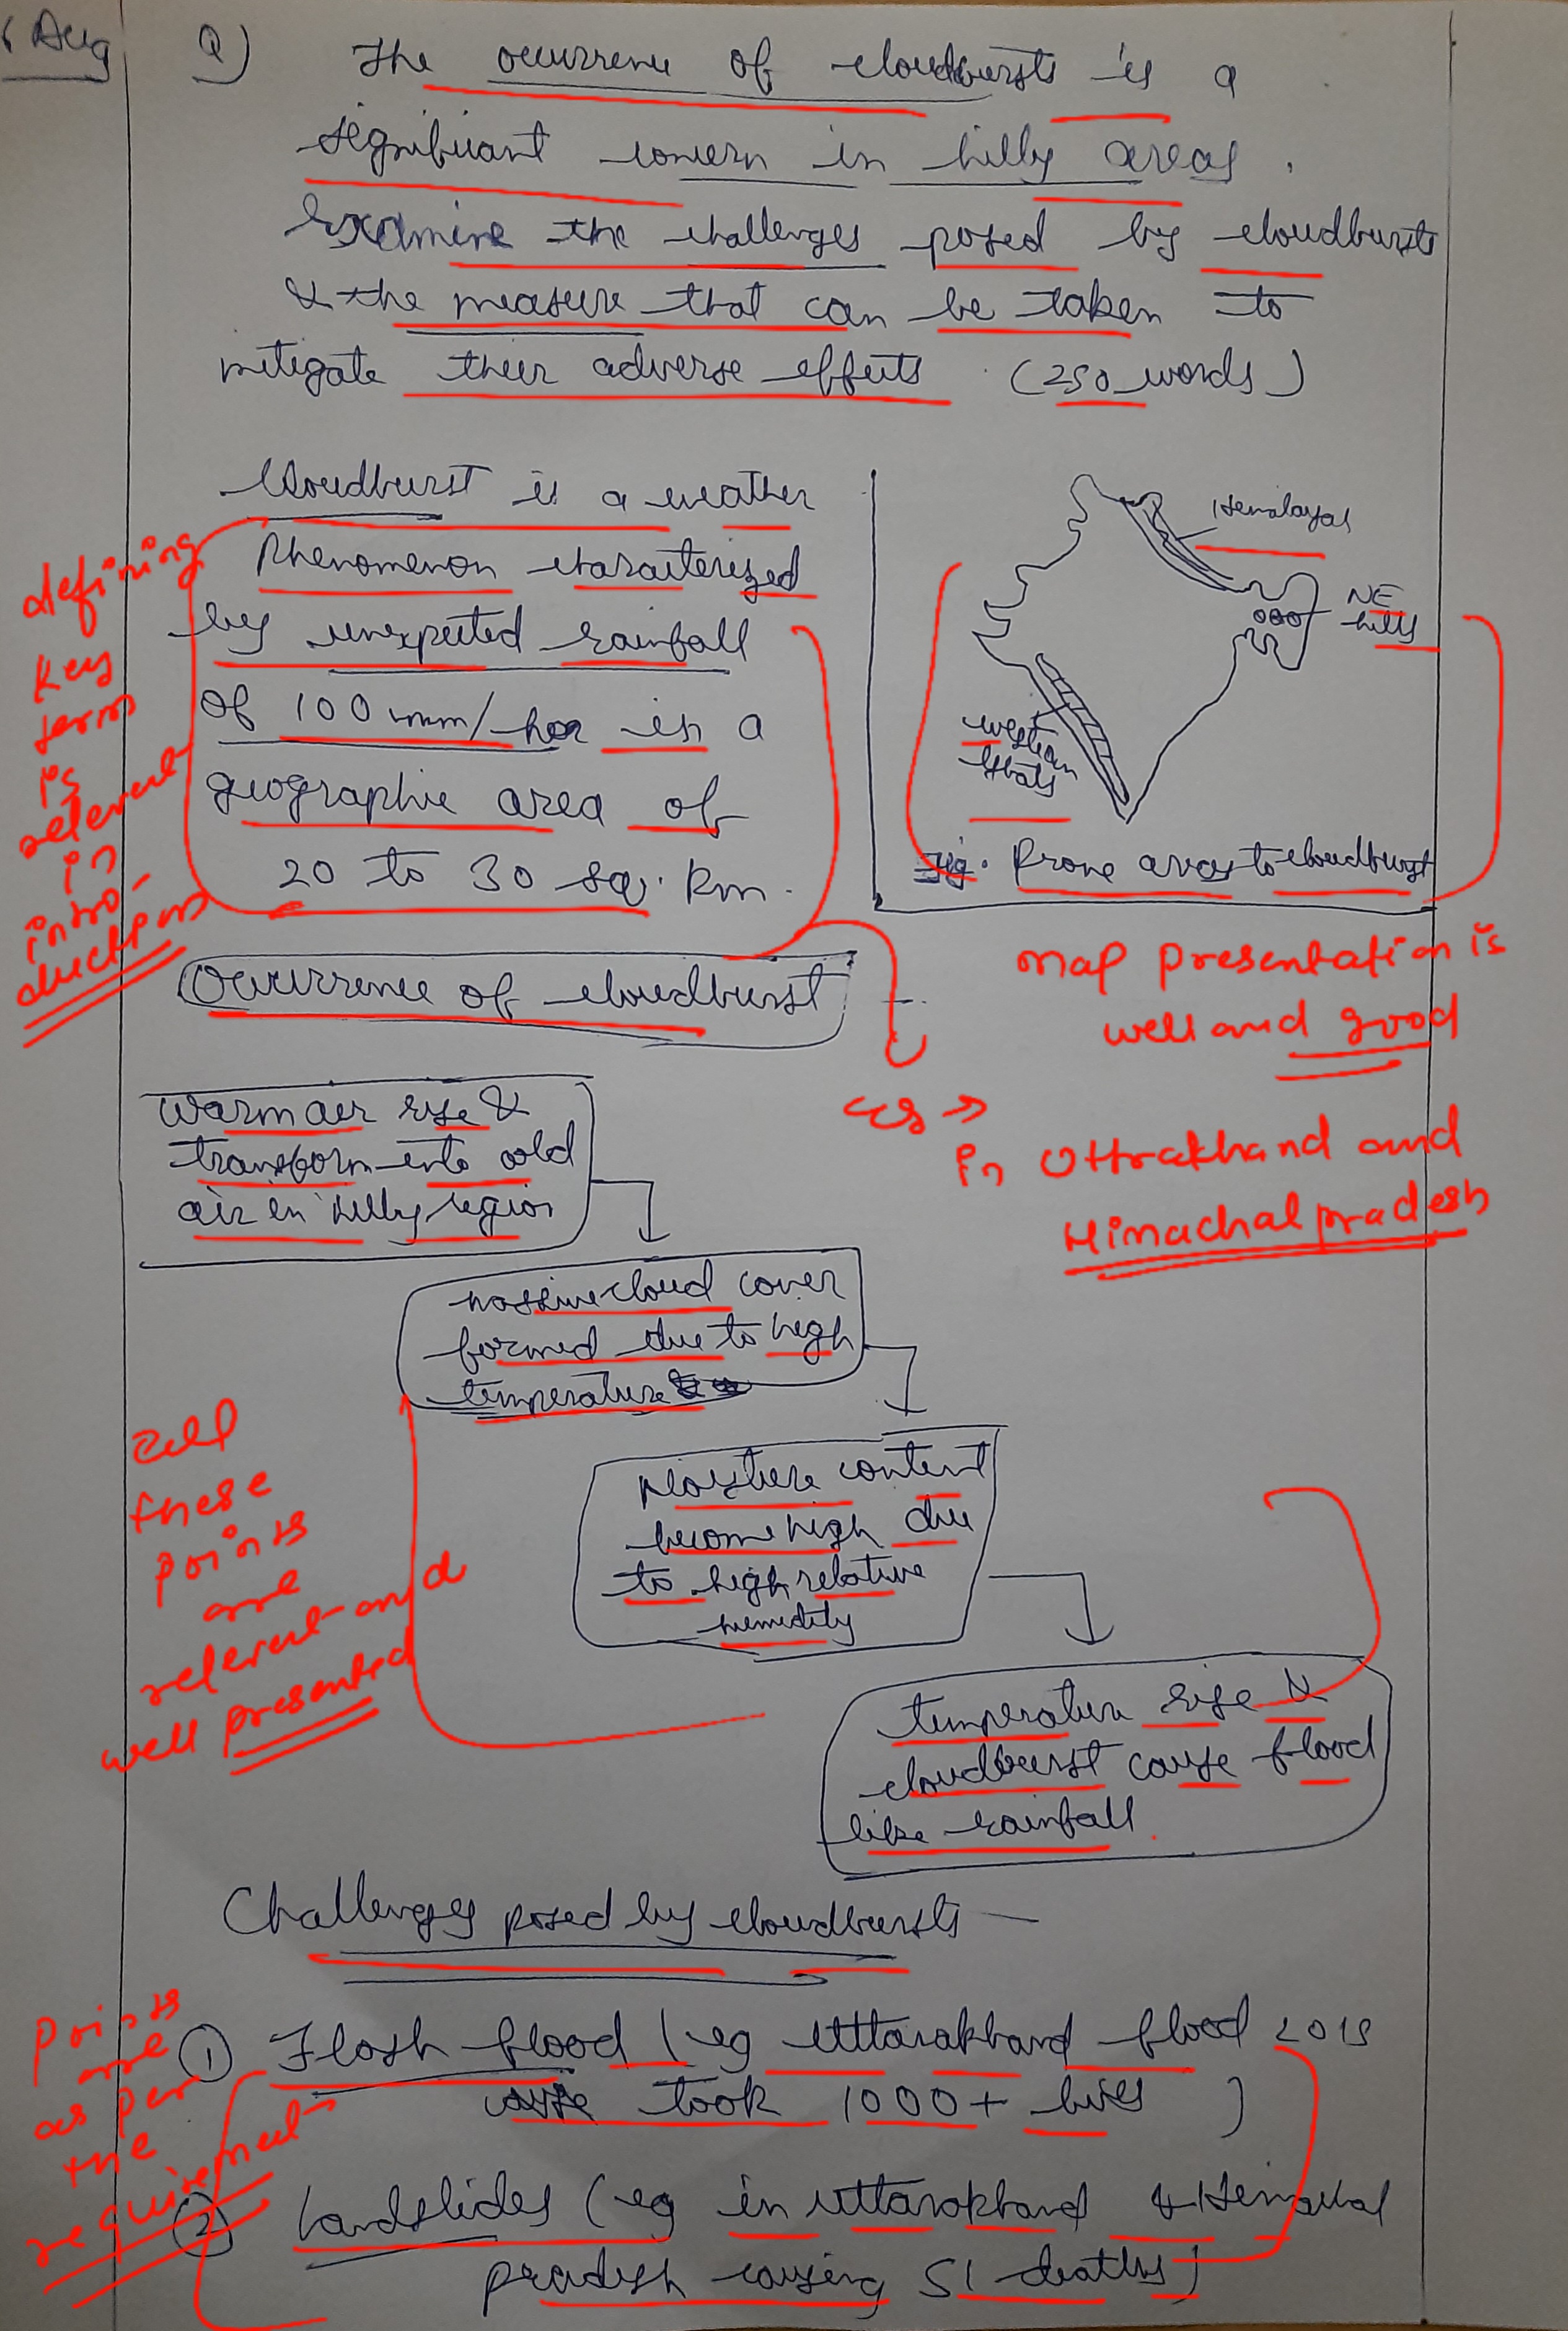 6 Aug
Q) The occurrence of cloudbursts is a
significant concern in hilly areas.
Examine the challenges posed by cloudbursts
& the measure that can be taken to
mitigate their adverse effects. (250 words)
Cloudburst is a weather
Phenomenon characterized
by unexpected rainfall
of 100 mm/hor in a
geographic area of
20 to 30 sq. km.
defining
key
term
is
relevant
in
intro-
duction
Himalayas
NE
hills
western
Ghats
fig. Prone areas to cloudburst
map presentation is
well and good
Occurrence of cloudburst -
eg →
in Uttrakhand and
Himachal pradesh
Warm air rise &
transform into cold
air in hilly region
massive cloud cover
formed due to high
temperature
Moisture content
become high due
to high relative
humidity
temperature rise &
cloudburst cause flood
like rainfall.
all
these
points
are
relevant and
well presented
Challenges posed by cloudbursts -
① Flash flood (eg Uttarakhand flood
took 1000+ lives)
② Landslides (eg in uttarakhand & Himachal
pradesh causing 51 deaths)
points
are
as per
the
requirement